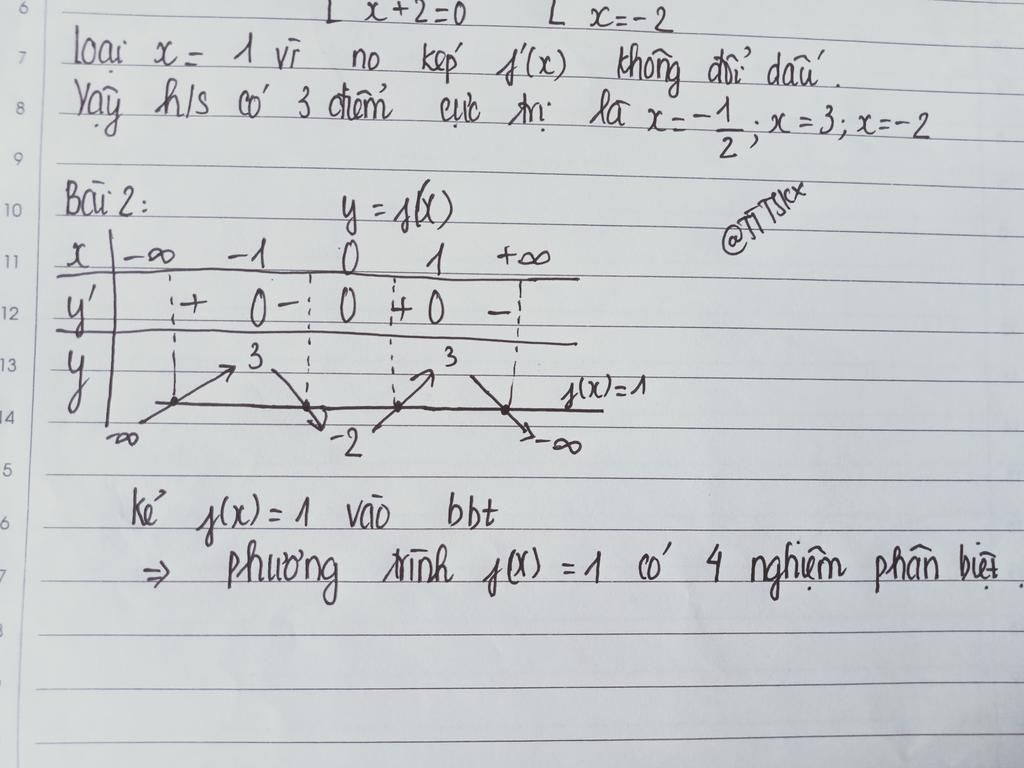 6 [ x+2=0 [ x=-2
7 loại x= 1 vì no kép f'(x) không đổi dấu.
8 Vậy h/s có 3 điểm cực trị là x=-1/2; x=3; x=-2
9
10 Bài 2: y=f(x)
@TTTSKX
11 x -∞ -1 0 1 +∞
12 y' + 0 - 0 + 0 -
13 y 3 3
f(x)=1
14 -∞ -2 -∞
5
6 Kẻ f(x)=1 vào bbt
7 ⇒ phương trình f(x)=1 có 4 nghiệm phân biệt.
8